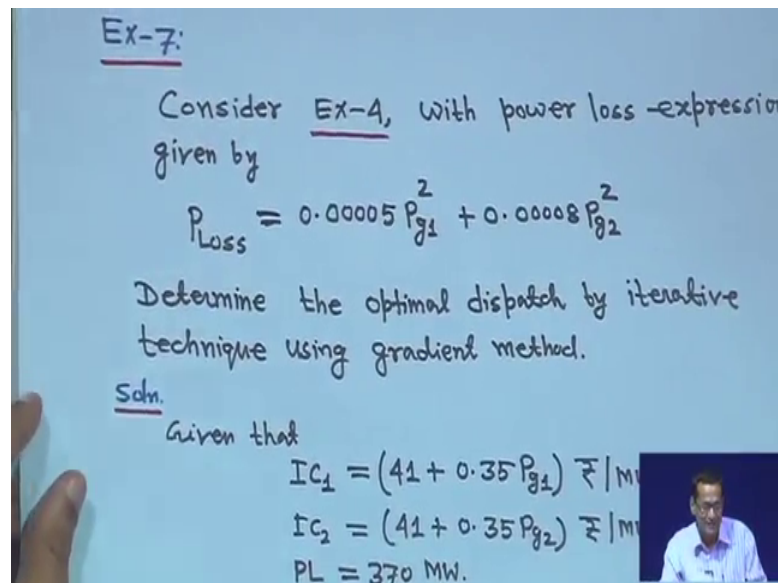 Ex-7:
Consider Ex-4, with power loss-expression
given by
P_Loss = 0.00005 P_g1^2 + 0.00008 P_g2^2
Determine the optimal dispatch by iterative
technique using gradient method.
Soln.
Given that
IC_1 = (41 + 0.35 P_g1) ₹|MW
IC_2 = (41 + 0.35 P_g2) ₹|MW
PL = 370 MW.